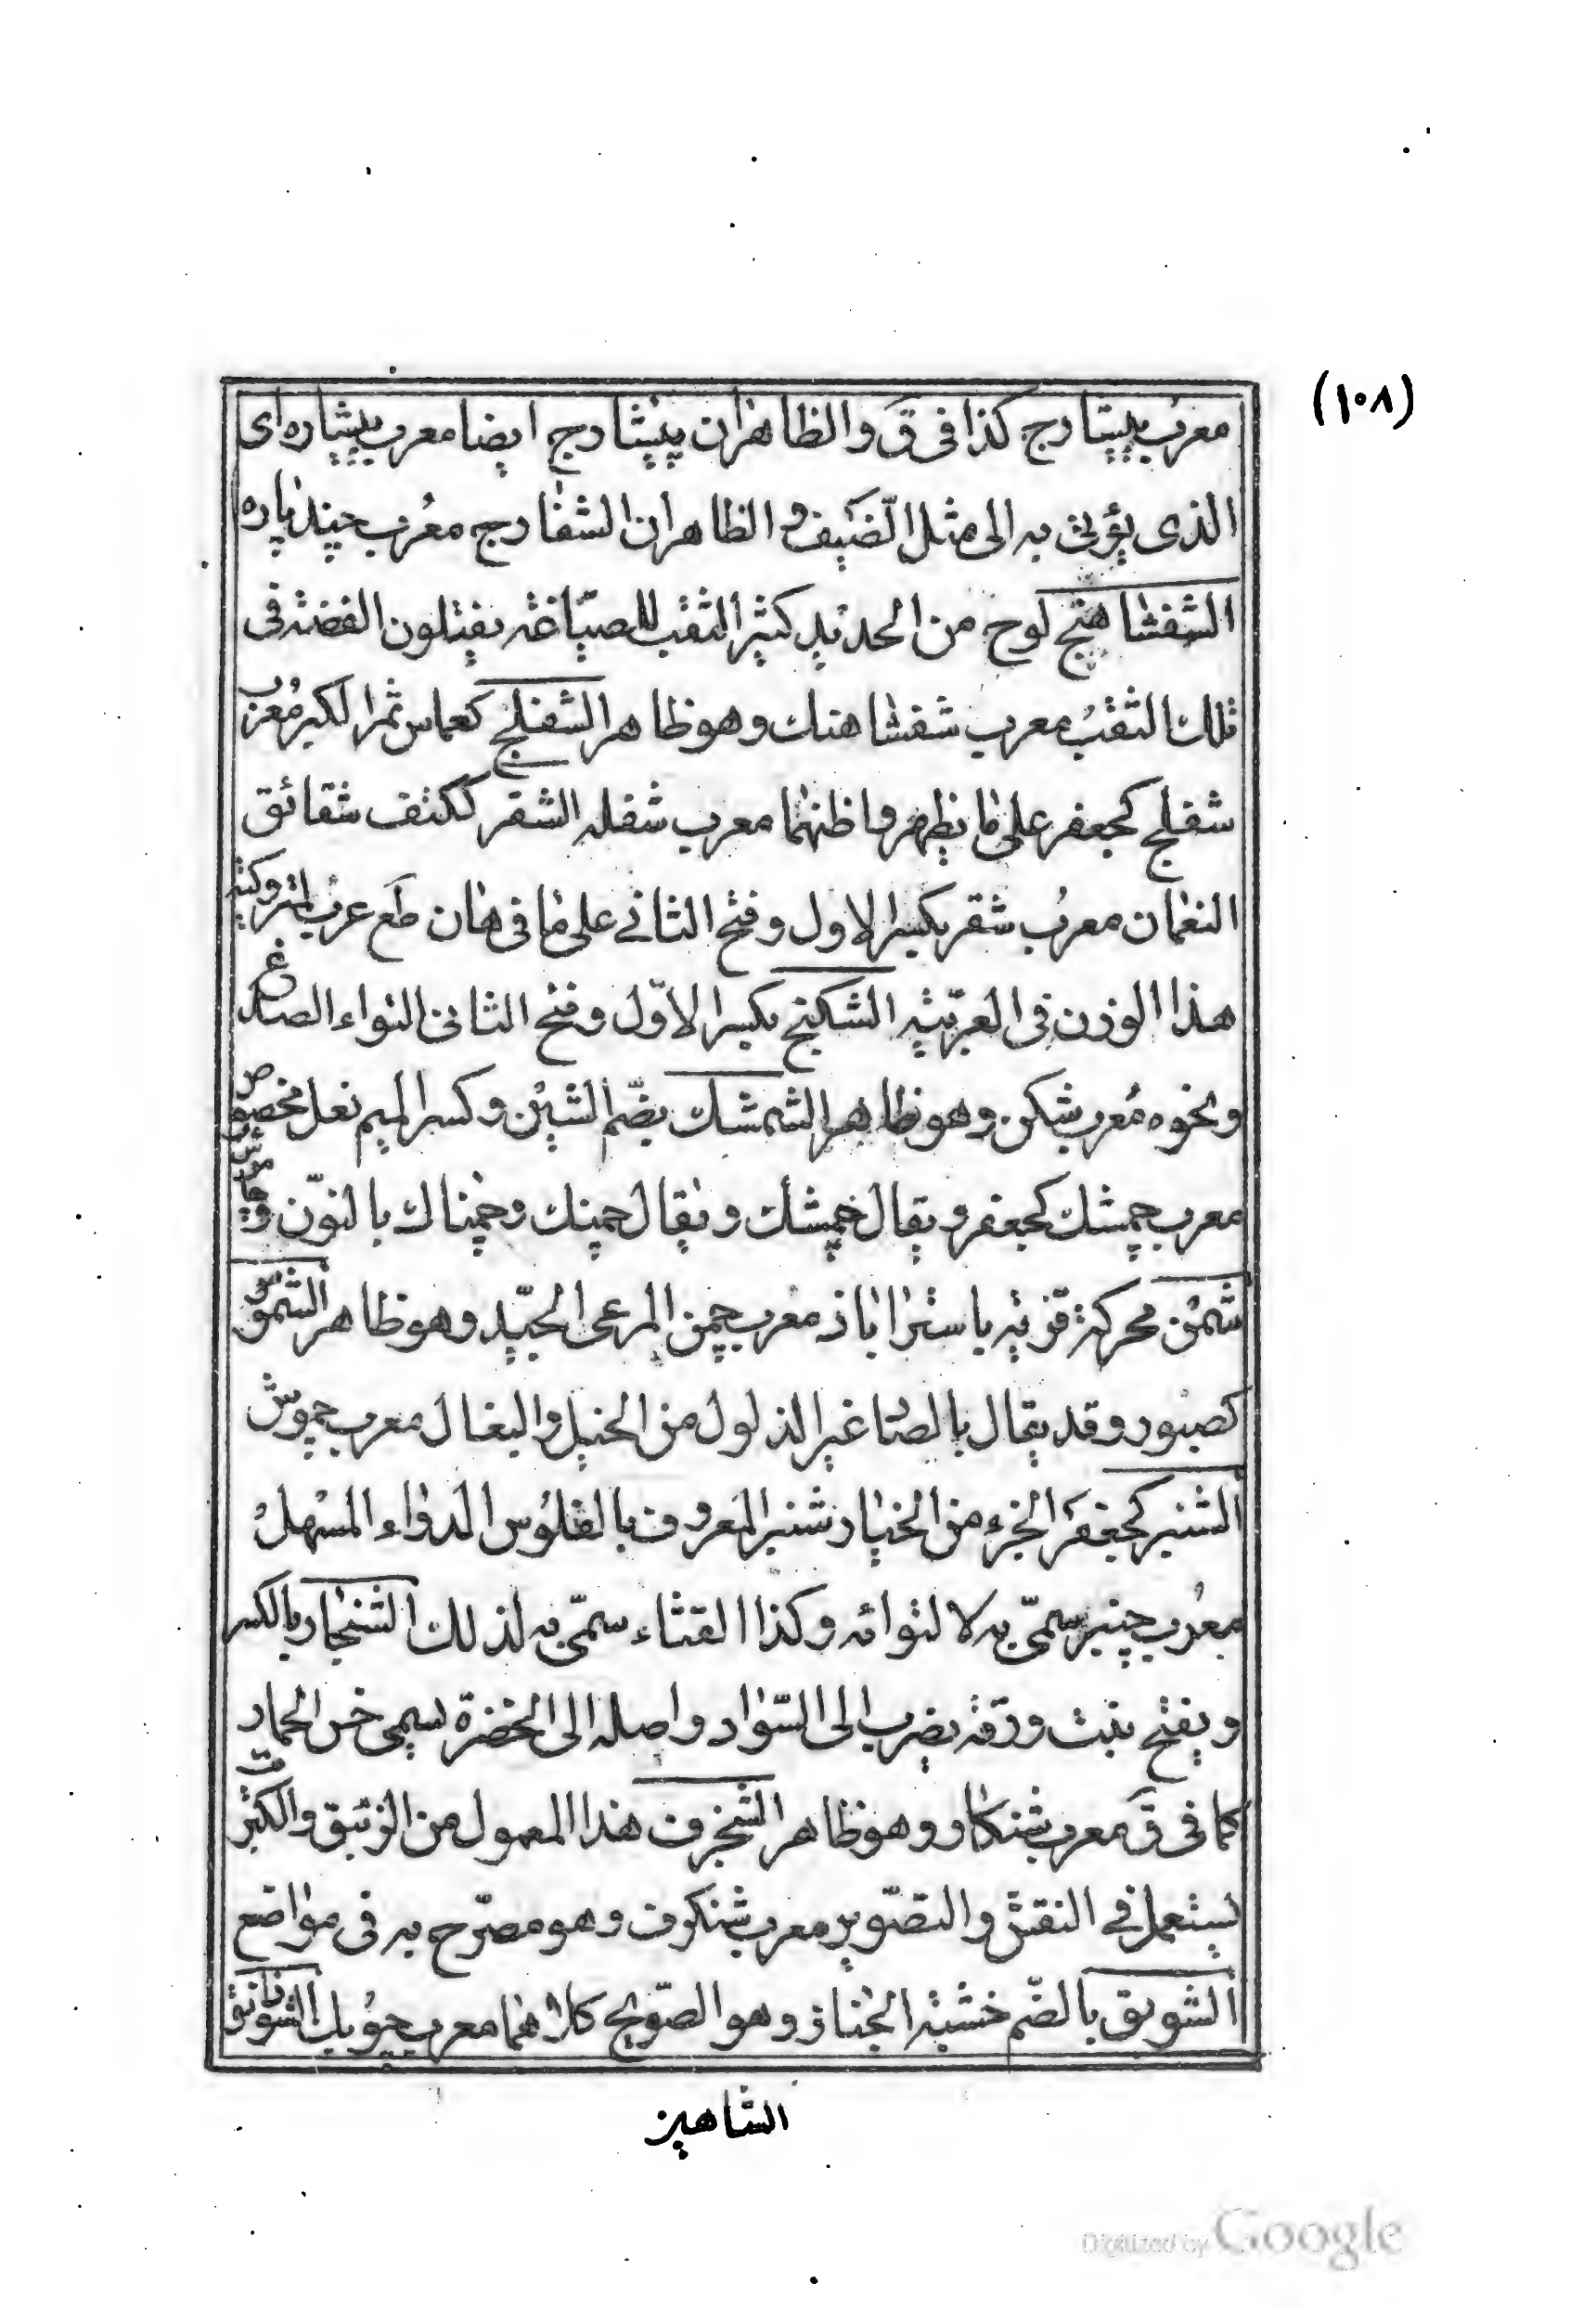 (١٠٨)
معرب پیشارج كذا فى ق والظاهر ان پیشارج ايضا معرب پیشاره اى
الذى يؤتى به الى مثل الضيف و الظاهر ان الشفارج معرب چند پاره
الشفشاهنج لوح من الحديد كثير الثقب للصياغة يفتلون الفضة فى
تلك الثقب معرب شفشاهنك وهو ظاهر الشفلج كعماس ثمر الكبر معرب
شفلج كجعفر على ما يظهر واظنهما معرب شفله الشقر ككتف شقائق
النعمان معرب شقر بكسر الاول وفتح الثانى على ما فى هان طع عرب لتروكية
هذا الوزن فى العربية الشكنج بكسر الاول وفتح الثانى التواء الصدغ
ونحوه معرب شكن وهو ظاهر الشمشك بضم الشين وكسر الميم نعل مخصوص
معرب چمشك كجعفر ويقال خمشك ويقال چمنك وچمناك بالنون
شمن محركة قرية باستراباذ معرب چمن المرعى الجيد وهو ظاهر الشموس
كصبور وقد يقال بالصاد غير الذلول من الخيل والبغال معرب چموش
الشنبر كجعفر الجزء من الخيار شنبر المعروف بالفلوس الدواء المسهل
معرب چنبر سمى به لالتوائه وكذا القثاء سمى به لذلك الشنجار بالكسر
ويفتح نبت ورقه يضرب الى السواد واصله الى الخضرة يسمى خس الحمار
كما فى ق معرب شنكار وهو ظاهر الشنجرف هذا المعمول من الزئبق والكبريت
يستعمل فى النقش والتصوير معرب شنكرف وهو مصرح به فى مواضع
الشوبق بالضم خشبة الخباز وهو الصوبج كلاهما معرب چوبك الشوانيق
الشاهين
Digitized by Google